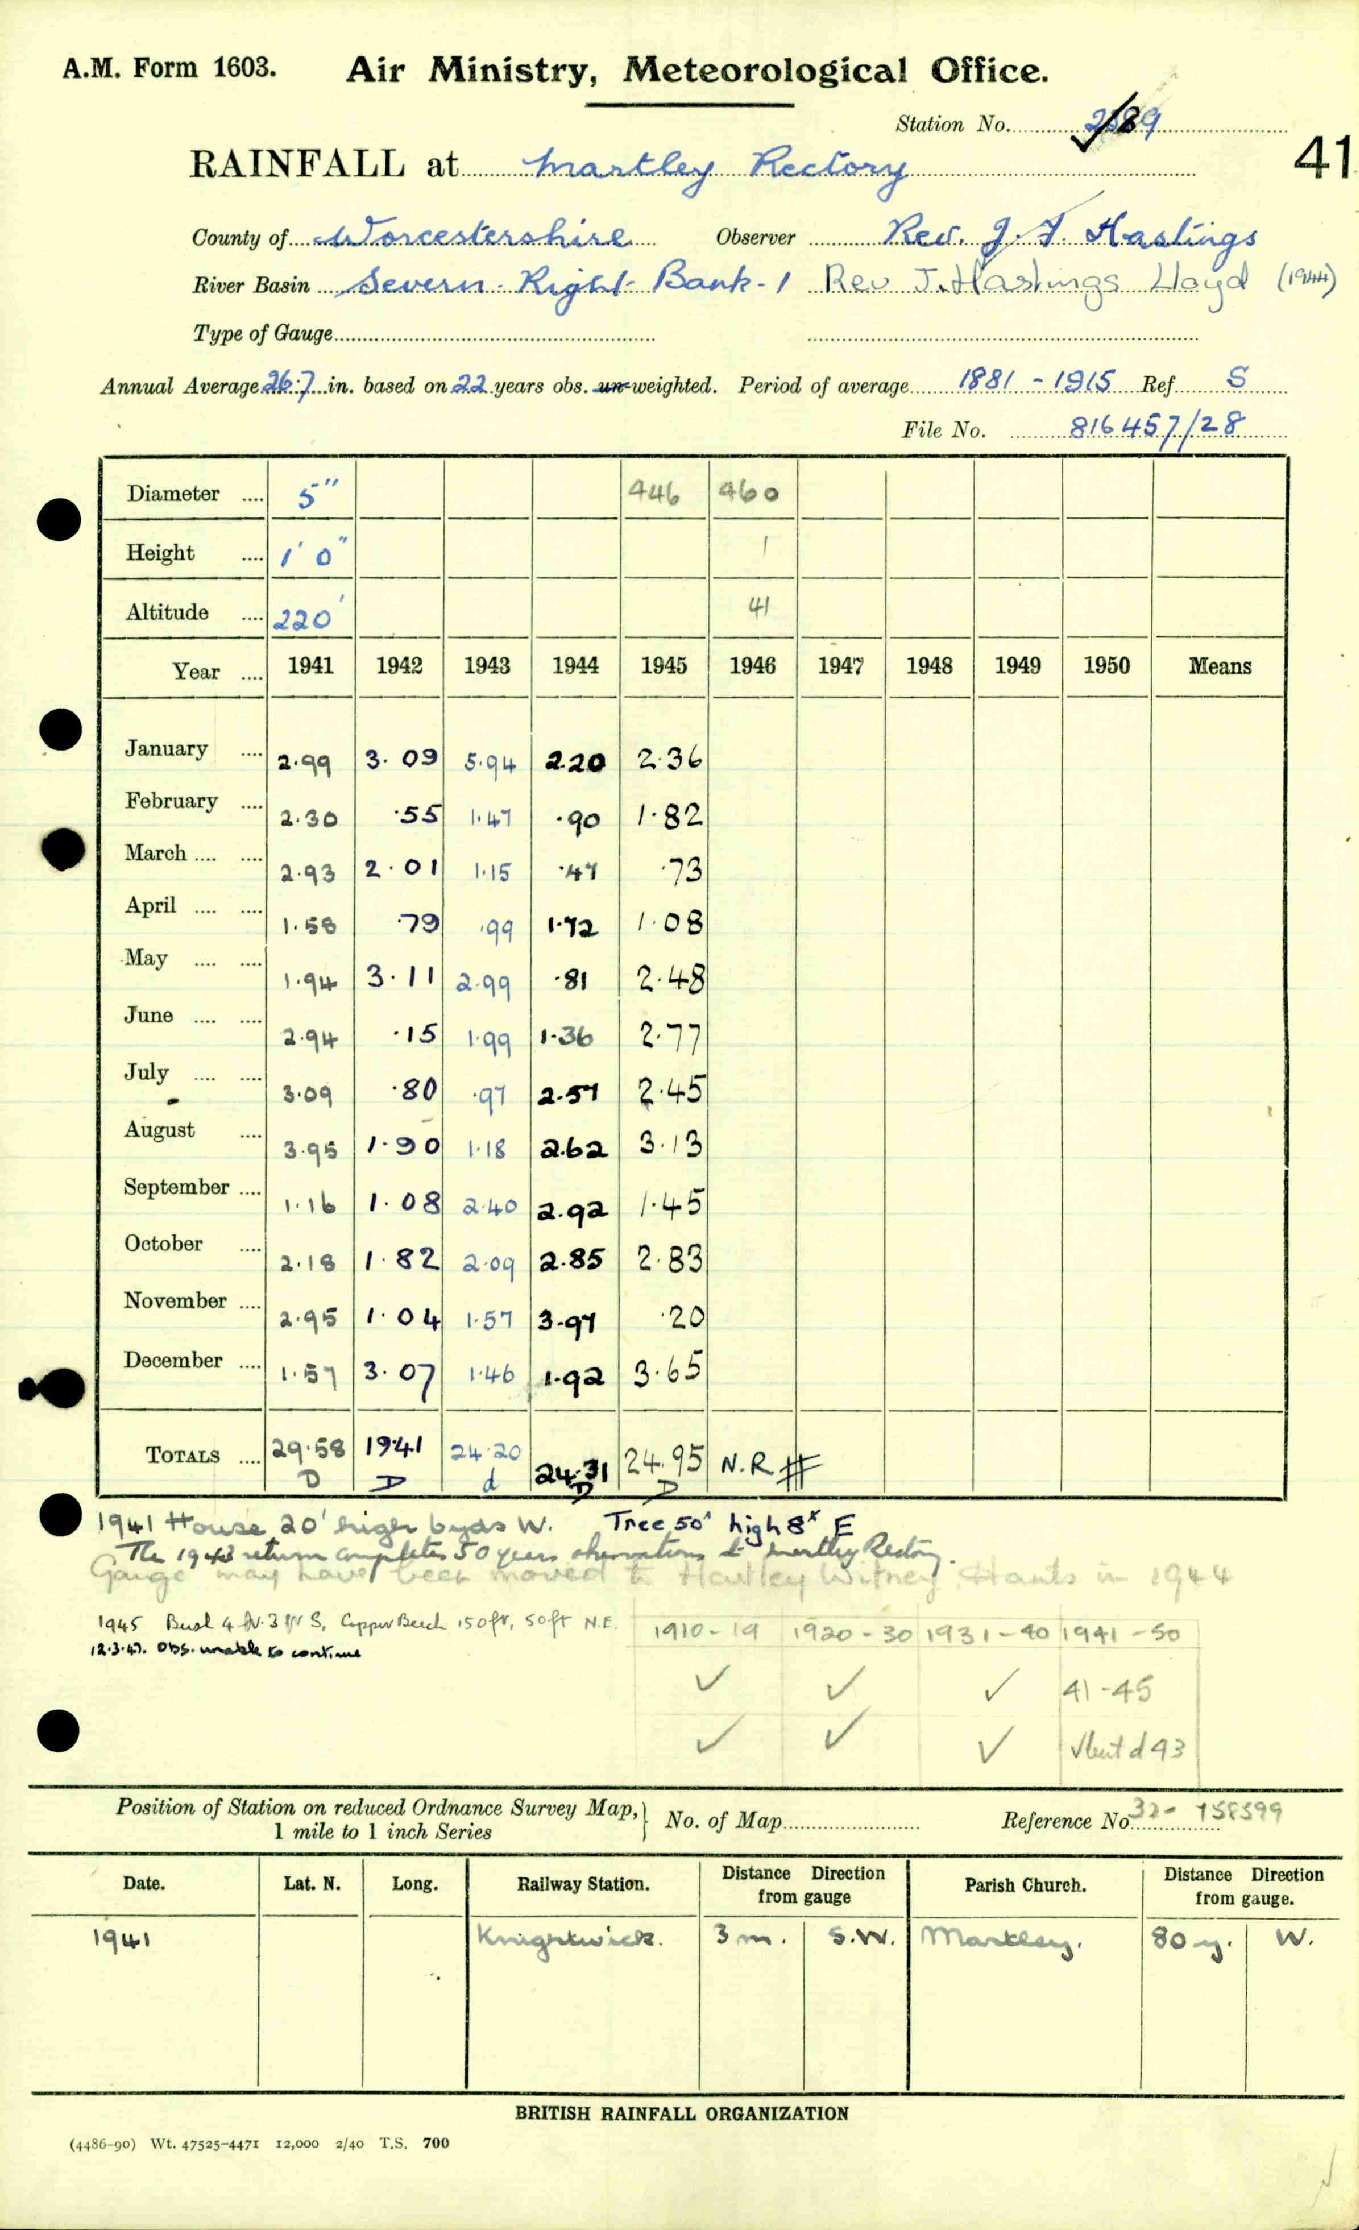 A.M. Form 1603. Air Ministry, Meteorological Office.
Station No.
41
RAINFALL at Martley Rectory
County of Worcestershire Observer Rev. J. F. Hastings
River Basin Severn - Right Bank - 1 Rev J. Hastings Lloyd (1944)
Type of Gauge
Annual Average 26.7 in. based on 22 years obs. un-weighted. Period of average 1881 - 1915 Ref S
File No. 816457/28
Diameter .... 5" 446 460
Height .... 1' 0" 1
Altitude .... 220' 41
Year .... 1941 1942 1943 1944 1945 1946 1947 1948 1949 1950 Means
January .... 2.99 3.09 5.94 2.20 2.36
February .... 2.30 .55 1.47 .90 1.82
March .... .... 2.93 2.01 1.15 .47 .73
April .... .... 1.58 .79 .99 1.72 1.08
May .... .... 1.94 3.11 2.99 .81 2.48
June .... .... 2.94 .15 1.99 1.36 2.77
July .... .... 3.09 .80 .97 2.57 2.45
August .... 3.95 1.90 1.18 2.62 3.13
September .... 1.16 1.08 2.40 2.92 1.45
October .... 2.18 1.82 2.09 2.85 2.83
November .... 2.95 1.04 1.57 3.97 .20
December .... 1.57 3.07 1.46 1.92 3.65
TOTALS .... 29.58 19.41 24.20 24.31 24.95 N.R #
D D d D D
1941 House 20' high 6yds W. Tree 50' high 8x E
The 1943 return completes 50 years observations at Martley Rectory.
Gauge may have been moved to Hartley Witney Hants in 1944
1945 4 N. 3 S, Copper Beech 150ft, 50ft N.E.
12.3.47. Obs. unable to continue
1910-19 1920-30 1931-40 1941-50
✓ ✓ ✓ 41-45
✓ ✓ ✓ ✓ but d 43
Position of Station on reduced Ordnance Survey Map, No. of Map Reference No 32-
1 mile to 1 inch Series
Date. Lat. N. Long. Railway Station. Distance from gauge Direction Parish Church. Distance Direction from gauge.
1941 Knightwick. 3 m. S.W. Martley. 80 y. W.
BRITISH RAINFALL ORGANIZATION
(4486-90) Wt. 47525-4471 12,000 2/40 T.S. 700